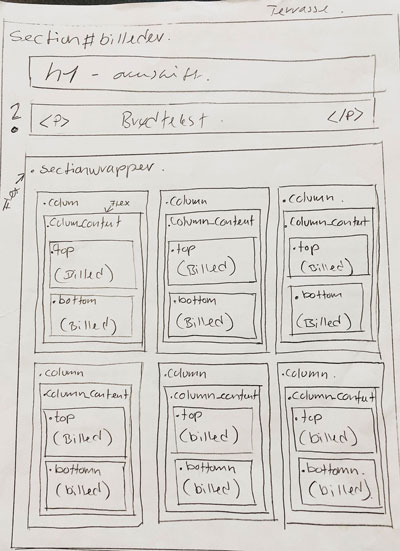 Terrasse.
Section#billeder.
h1 - overskrift.
2.
<p> Brødtekst. </p>
.sectionwrapper.
Flex
.column
Flex
.column_content
.top
(Billed)
.bottom
(Billed)
.column
.column_content
.top
(Billed)
.bottom
(Billed)
.column.
.column_content
.top
(Billed)
.bottom
(Billed)
.column
.column_content
.top
(Billed)
.bottomn
(billed)
.column
.column_content
.top
(billed)
.bottomn
(billed)
.column.
.column_content
.top
(billed)
.bottomn.
(billed)